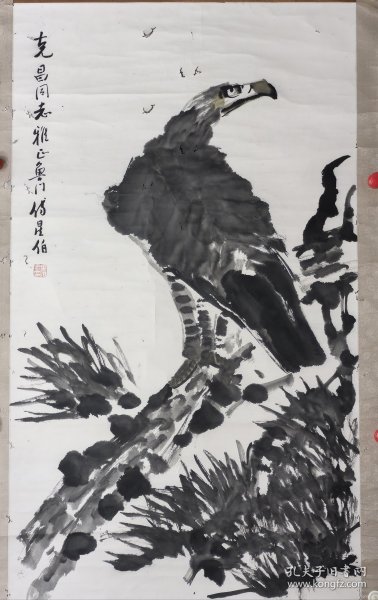 克昌同志雅正鲁门付星伯
孔夫子旧书网
www.kongfz.com